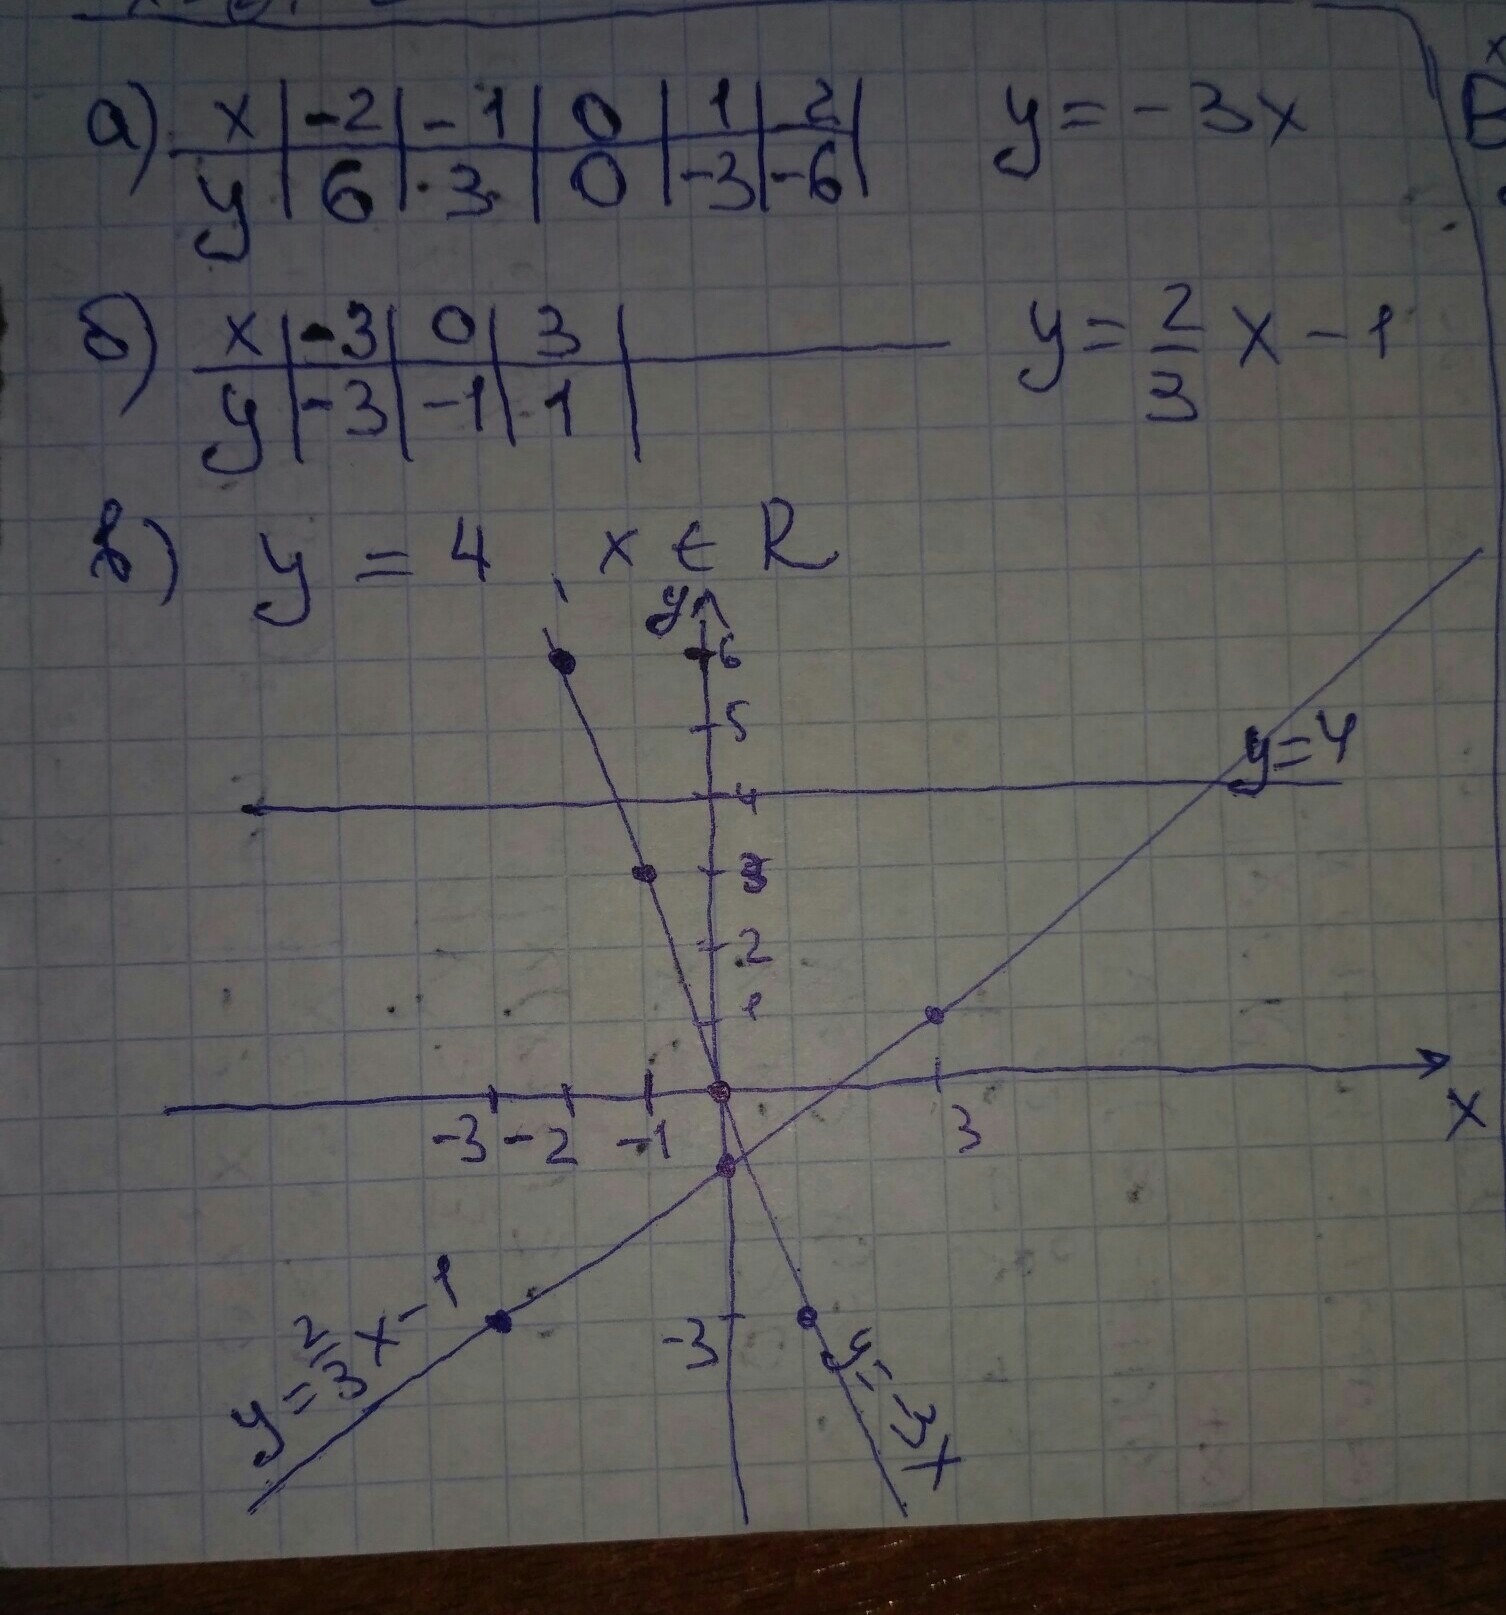 а) x | -2 | -1 | 0 | 1 | 2 | y = -3x
y | 6 | 3 | 0 | -3 | -6 |
б) x | -3 | 0 | 3 | y = 2/3 x - 1
y | -3 | -1 | 1 |
в) y = 4, x ∈ R
y
6
5
y=4
4
3
2
1
-3 -2 -1 3 x
-3
y = 2/3 x - 1
y = -3x